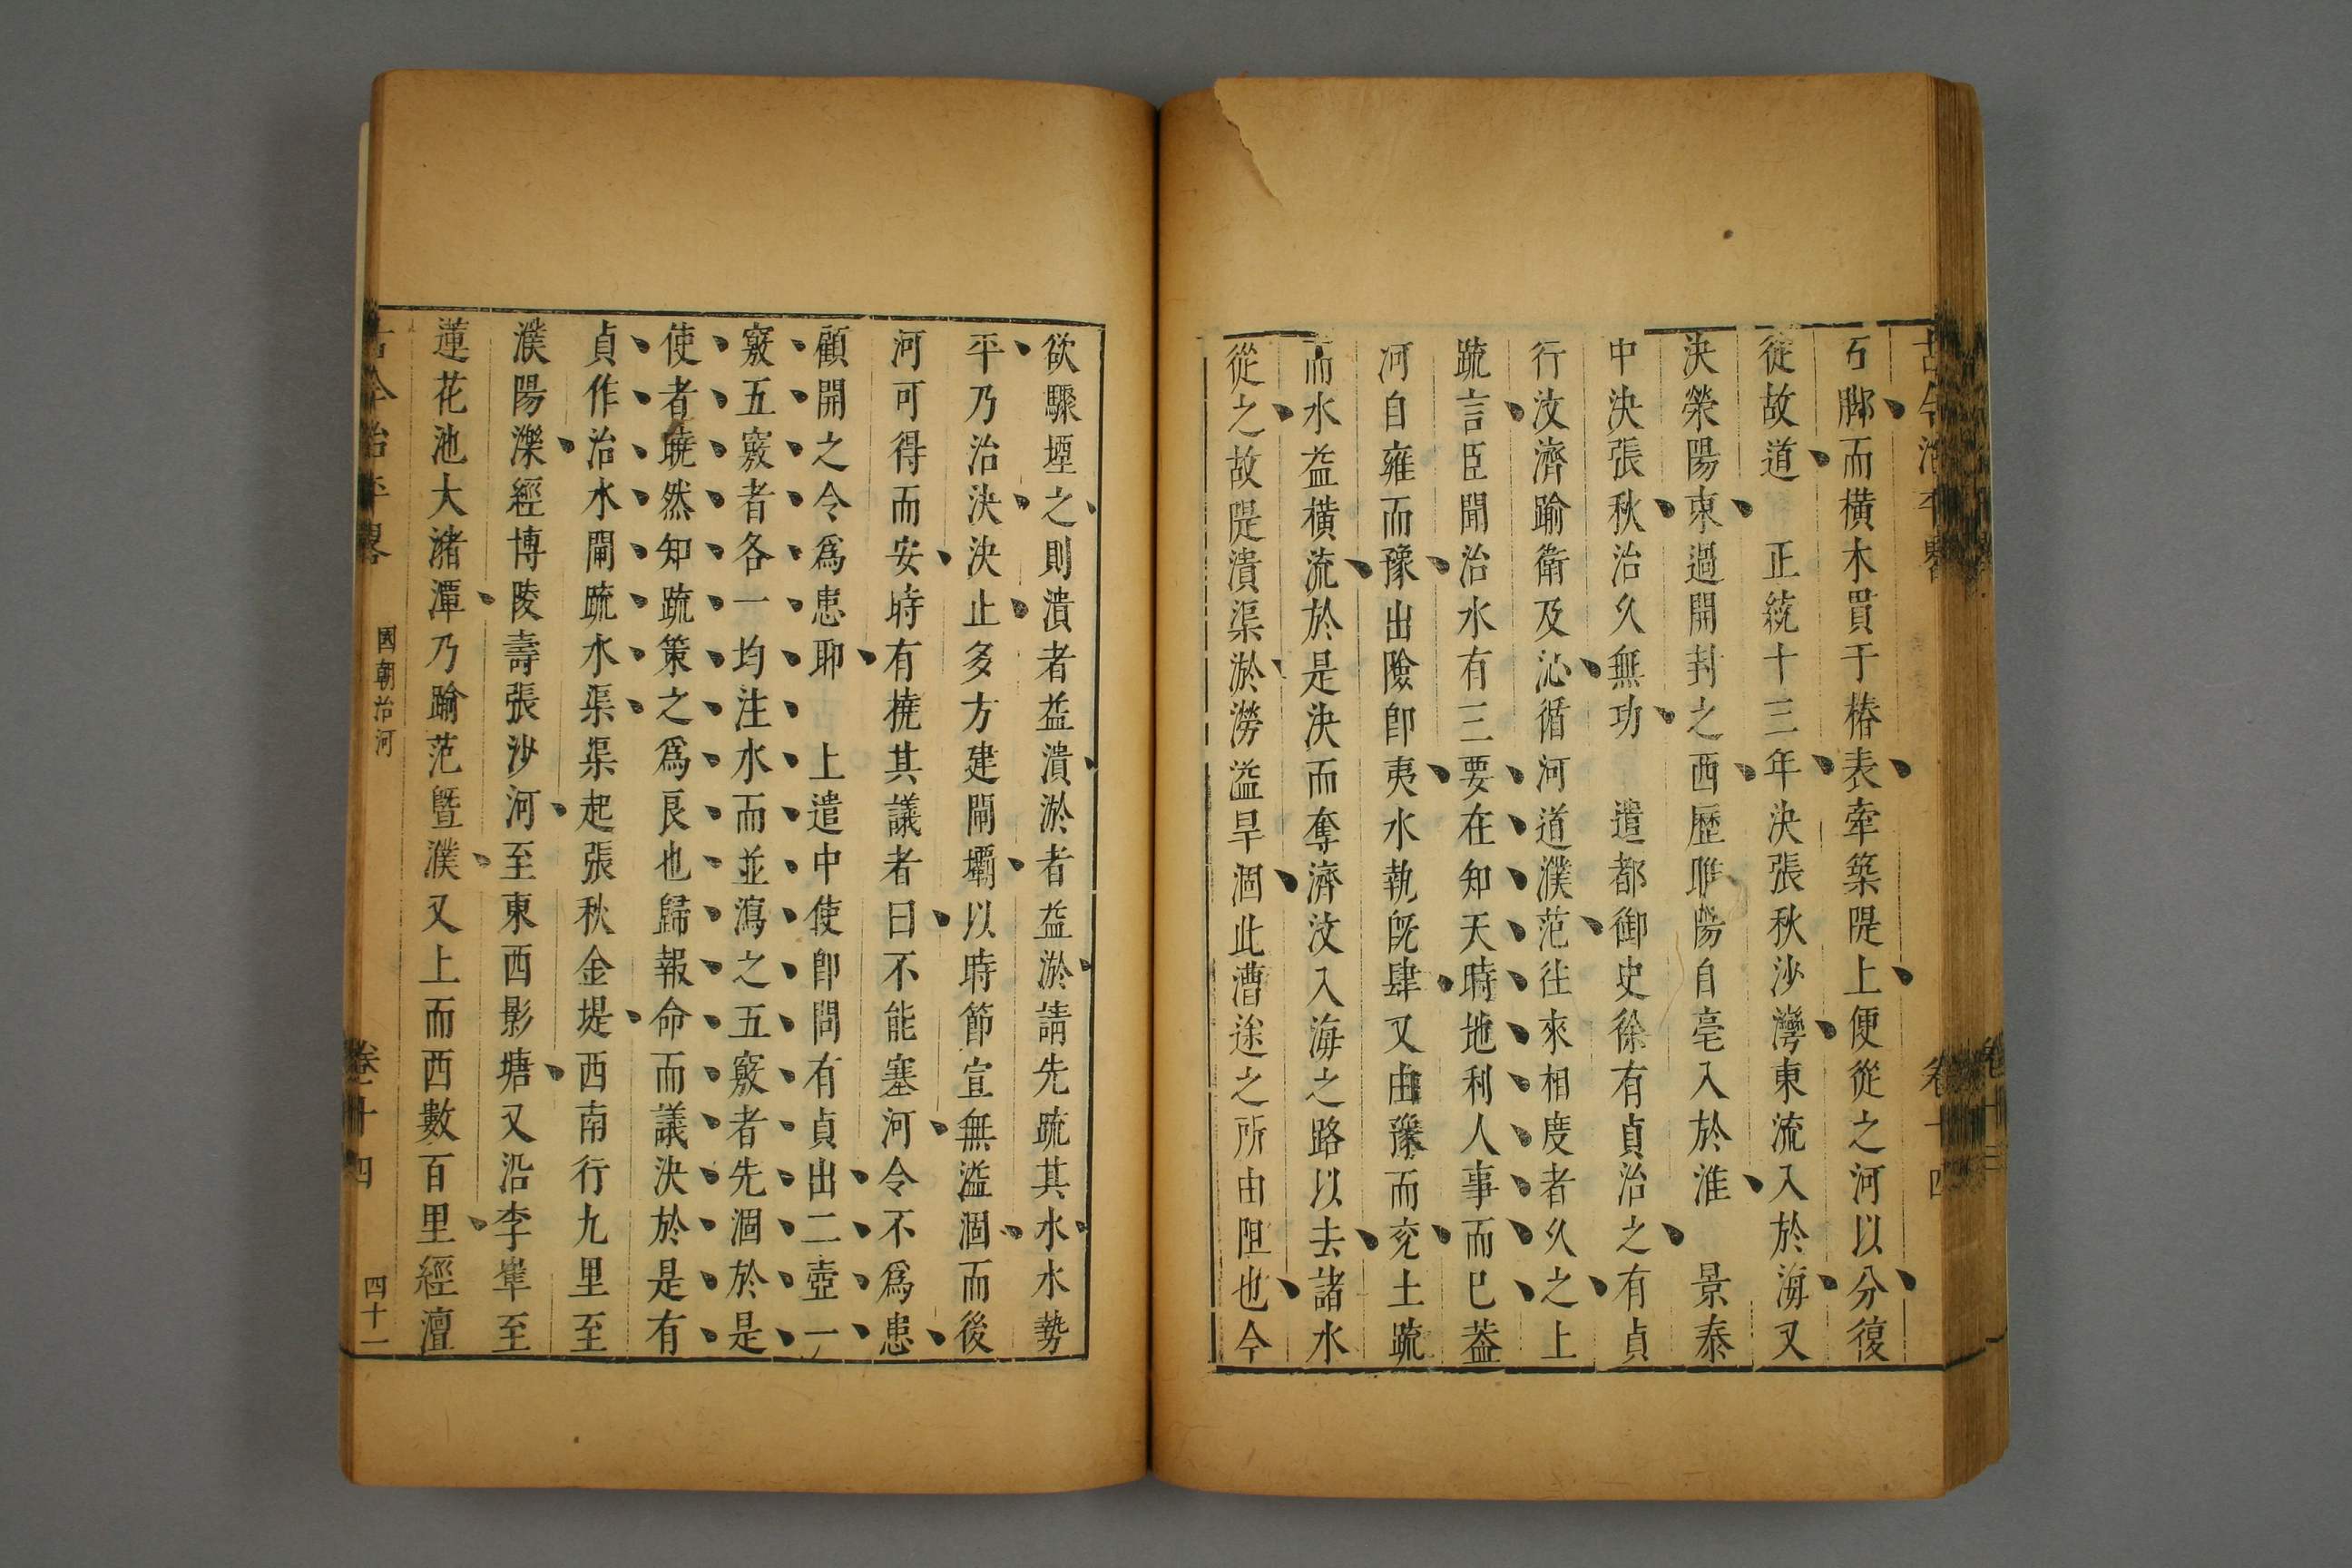 古今治平畧 卷十四
丂脚而橫木貫于樁表牽築隄上便從之河以分復
從故道 正統十三年決張秋沙灣東流入於海又
決滎陽東過開封之西歷睢陽自亳入於淮 景泰
中決張秋治久無功 遣都御史徐有貞治之有貞
行汶濟踰衛及沁循河道濮范往來相度者久之上
疏言臣聞治水有三要在知天時地利人事而巳葢
河自雍而豫出險卽夷水執旣肆又由豫而兖土疏
而水益橫流於是決而奪濟汶入海之路以去諸水
從之故隄潰渠淤澇溢旱涸此漕途之所由阻也今
欲驟堙之則潰者益潰淤者益淤請先疏其水水勢
平乃治決決止多方建閘壩以時節宣無溢涸而後
河可得而安時有撓其議者曰不能塞河令不爲患
顧開之令爲患耶 上遣中使卽問有貞出二壺一
竅五竅者各一均注水而並瀉之五竅者先涸於是
使者曉然知疏策之爲良也歸報命而議決於是有
貞作治水閘疏水渠渠起張秋金堤西南行九里至
濮陽濼經博陵壽張沙河至東西影塘又沿李𡸗至
蓮花池大瀦潭乃踰范曁濮又上而西數百里經澶
古今治平畧 國朝治河 卷十四 四十一